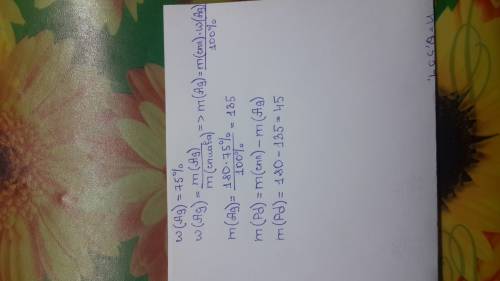 w(Ag) = 75%
w(Ag) = m(Ag) / m(сплава) => m(Ag) = m(спл)·w(Ag) / 100%
m(Ag) = 180·75% / 100% = 135
m(Pd) = m(спл) – m(Ag)
m(Pd) = 180 – 135 = 45